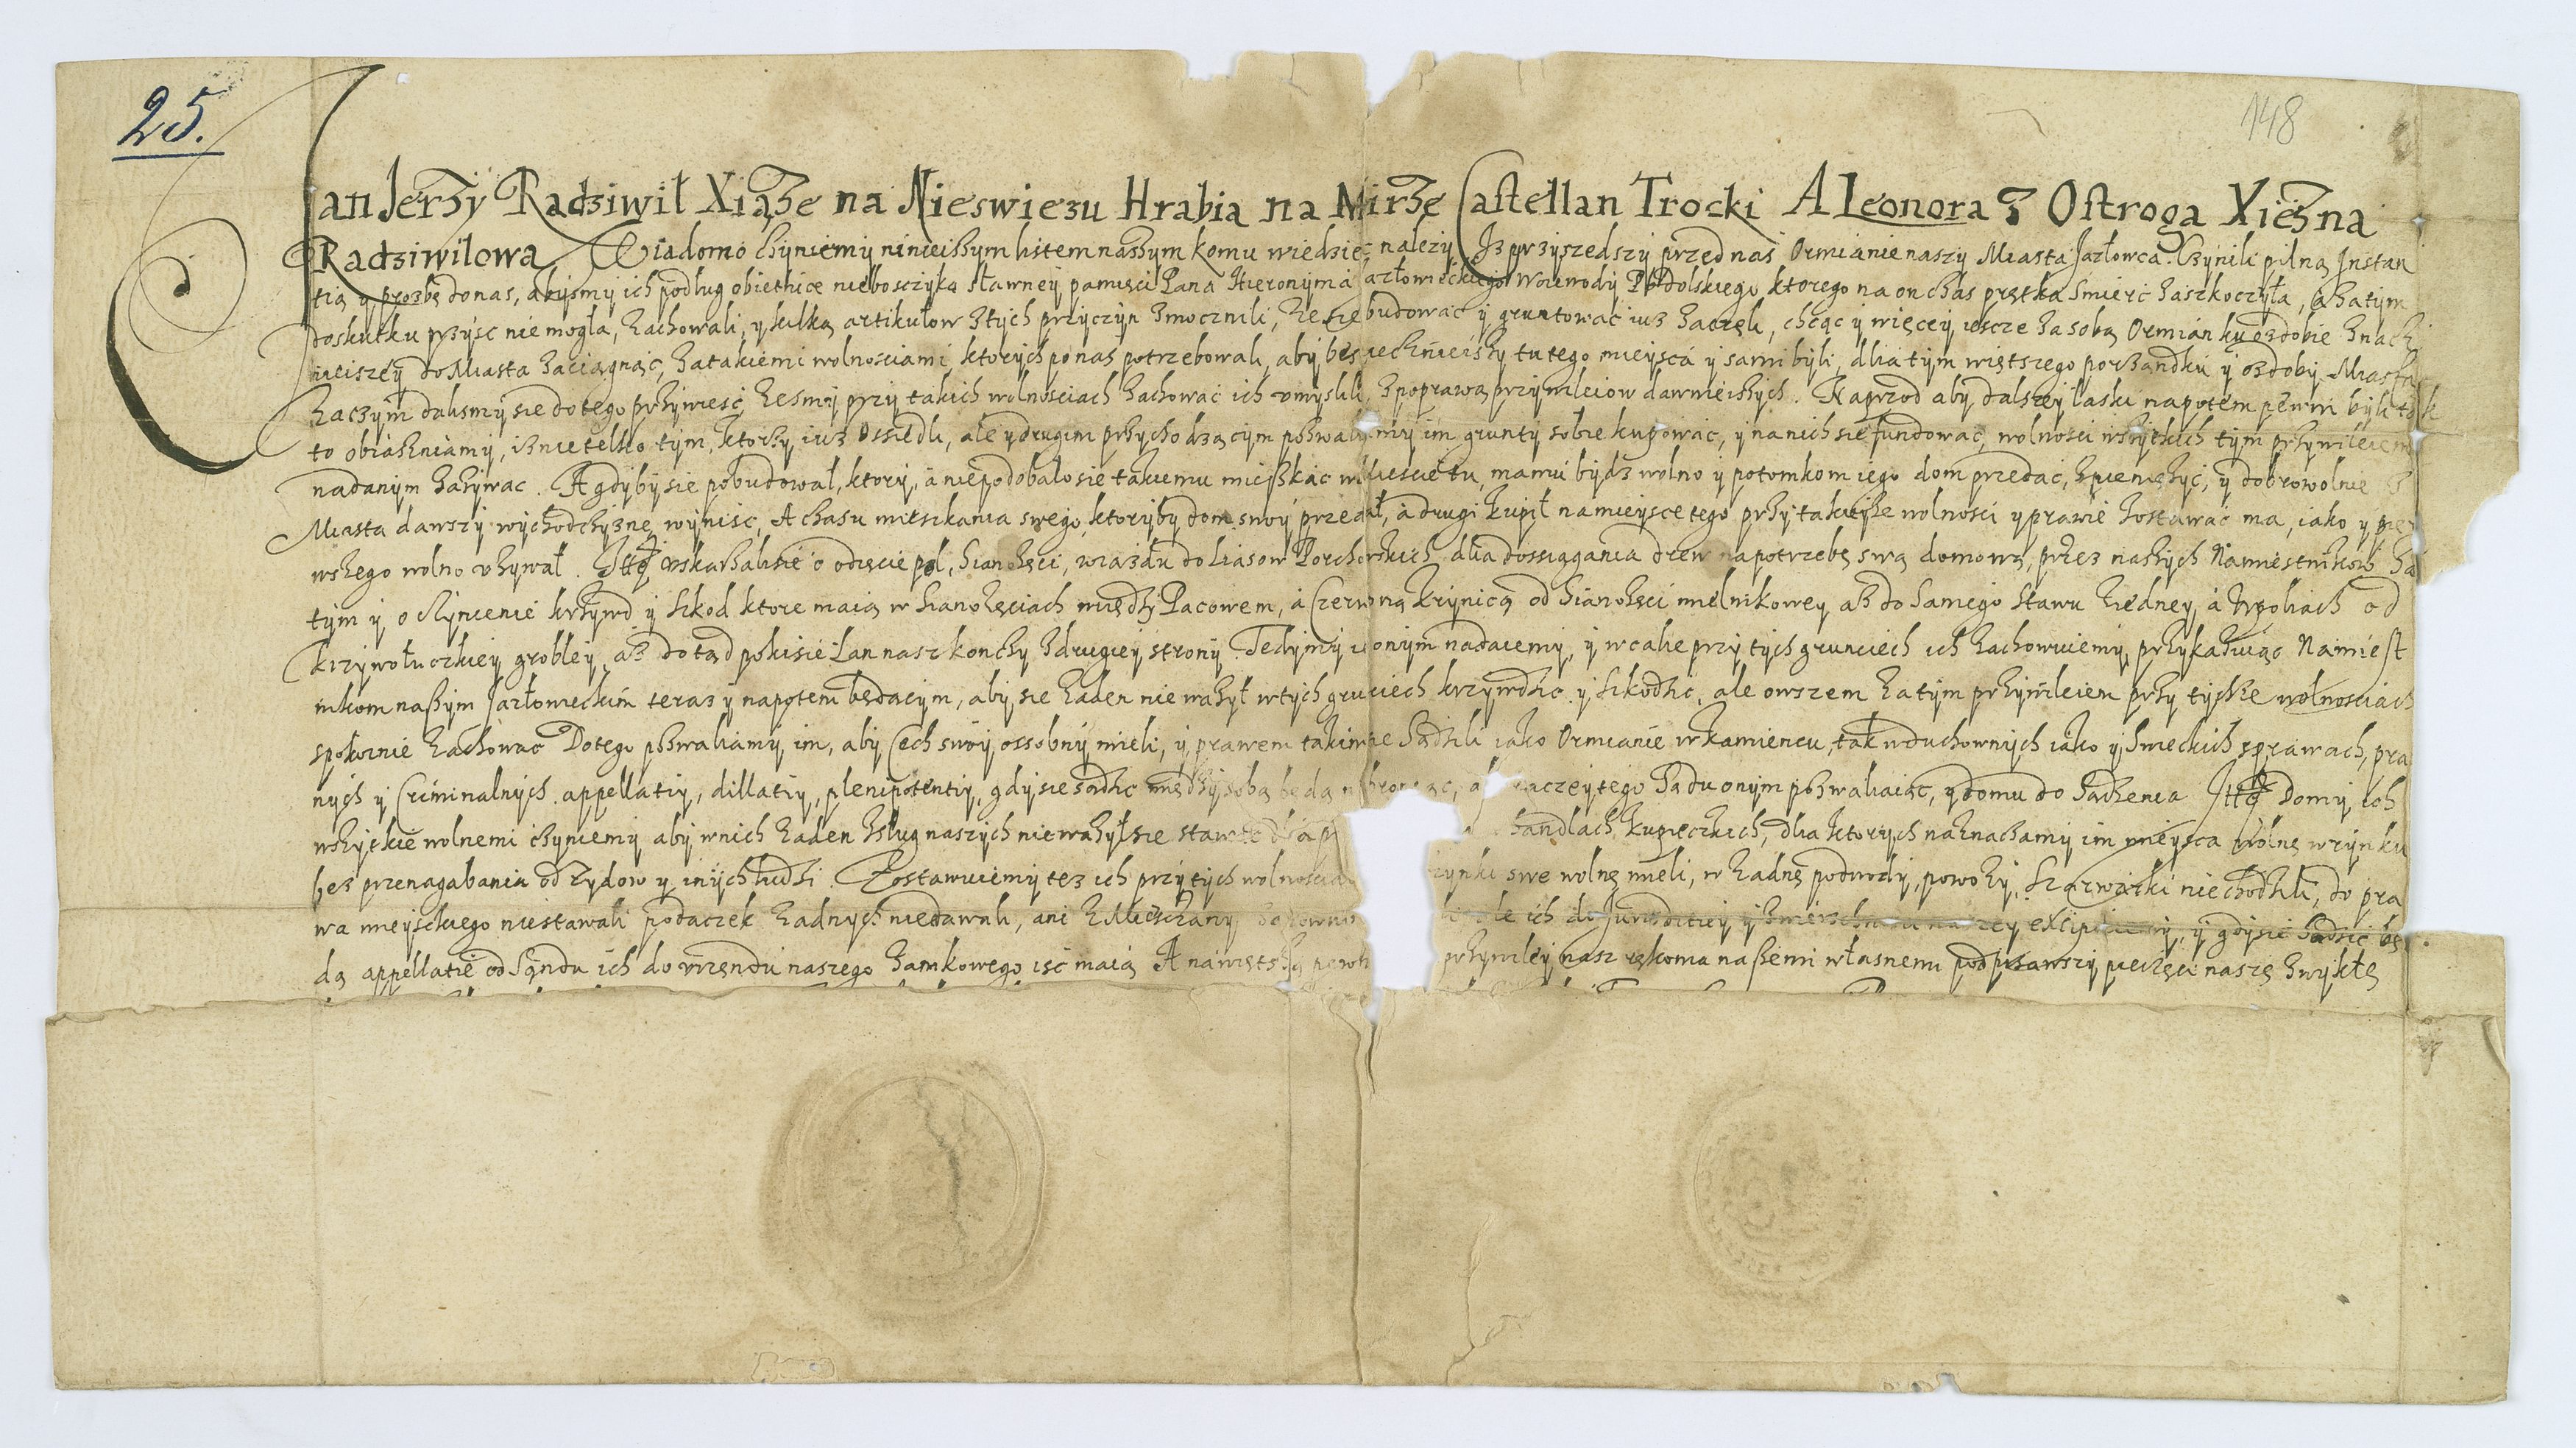 25.
148
Jan Jerzy Radziwił Xiąże na Nieswiezu Hrabia na Mirze Castellan Trocki ALeonora z Ostroga Xiężna
Radziwilowa Wiadomo czyniemy ninieiszym listem naszym komu wiedzieć należy Iż przyszedszy przed nas Ormianie naszy Miasta Jazłowca Uczynili pilną Instan
tią y prozbę do nas, abysmy ich podług obietnice nieboszczyka sławney pamięci Pana Hieronyma Jazłowieckiego Woiewody Podolskiego ktorego na on czas prętka smierć zaskoczyła, a zatym
doskutku przyść nie mogła, zachowali, y kilką artikułow z tych przyczyn zmocnili, ze się budować y gruntować iuz zaczęli, chcąc y więcey iescze za sobą Ormian ku ozdobie znacz
nieiszey do Miasta zaciągnąć, za takiemi wolnosciami, ktorych po nas potrzebowali, aby bespiecznieiszy tu tego mieysca y sami byli, dlia tym więtszego porządku y ozdoby Miasta
zaczym dalismy się do tego przywiesć, zesmy przy takich wolnosciach zachować ich umyslili, z poprawą przywileiow dawnieiszych. Naprzod aby dalszey łaski napotem pewni byli tak
to obiaszniamy, iz nie telko tym, ktorzy iuz ossiedli, ale y drugim przychodzącym pozwalamy im grunty sobie kupować, y na nich się fundować, wolnosci wszytkich tym przywileiem
nadanym zazywac. A gdyby sie pobudował, ktory, a niepodobalo sie takiemu mieszkac w Miescie tu, ma mu bydz wolno y potomkom iego dom przedać, spieniężyć, y dobrowolnie z
Miasta dawszy wychodczyznę wyniść, A czasu mieszkania swego, ktoryby dom swoy przedał, a drugi kupił na mieysce tego przy takieyże wolnosci y prawie zostawać ma, iako y pier
wszego wolno uzywał. Uskarzali sie o odięcie pol, sianożęci, wiazdu do liasow Porchowskich dlia dosiągania drew na potrzebę swą domową, przez naszych Namiestnikow za
tym y o czynienie krzywd y szkod ktore maią w sianożęciach między Pacowem, a Czerwoną Krynicą od sianożęci mielnikowey aż do samego stawu
Krzywołuczkiey grobley, aż dotąd poki sie Łan nasz konczy z drugiey strony. Tedy my y onym nadaiemy, y wcalie przy tych grunciech ich zachowuiemy, przykazuiąc Namiest
nikom naszym Jazłowieckim teraz y napotem będącym, aby sie żaden nie ważył w tych grunciech krzywdzic y szkodzic, ale owszem za tym przywileiem przy tychże wolnosciach
społecznie zachować Do tego pozwaliamy im, aby Cech swoy ossobny mieli, y prawem takimże sądzili iako Ormianie w Kamiencu, tak w duchownych iako y swieckich sprawach, pra
nych y Criminalnych appellatiy, dillatiy, plenipotentiy, gdy sie sądzic między sobą będą tego sądu onym pozwaliaiąc, y domu do sądzenia Domy ich
wszytkie wolnemi czyniemy aby w nich żaden z sług naszych nie ważył sie stawać handlach kupieczkich, dlia ktorych naznaczamy im mieysca wolne w rynku
bez przenagabania od Zydow y inych ludzi. Zostawuiemy tez ich przy tych wolnosciach swe wolne mieli, w żadne podwody, powozy, szarwarki nie chodzili, do pra
wa mieyskiego nie stawali podaczek żadnych nie dawali, ani z Mieszczany ale ich do Jurisditiey y zwierzchnosci naszey excipuiemy, y gdy sie sądzić bę
dą appellatie od sądu ich do urzendu naszego zamkowego iść maią A na więtszą przywiley nasz rękoma naszemi własnemi podpisawszy pieczęci nasze zwykłe